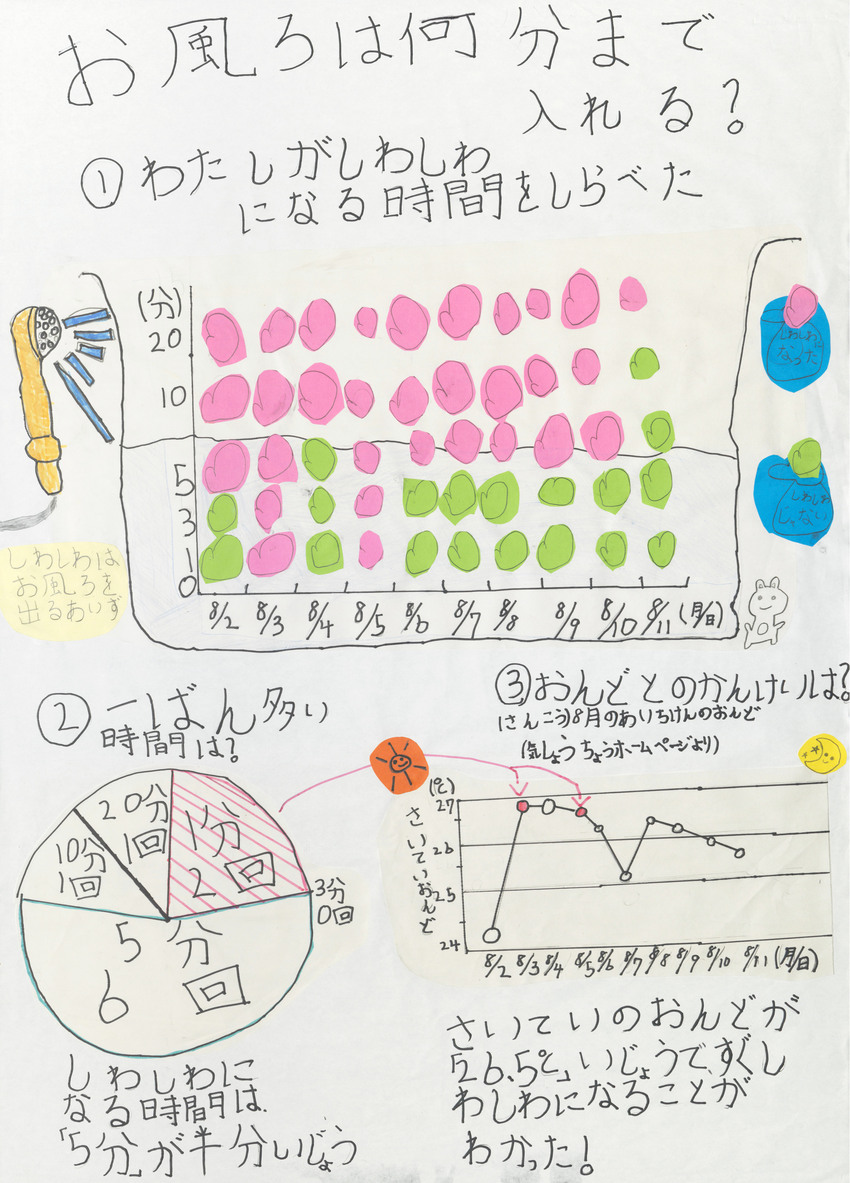 お風ろは何分まで
入れる?
①わたしがしわしわ
になる時間をしらべた
(分)
20
10
5
3
1
0
8/2 8/3 8/4 8/5 8/6 8/7 8/8 8/9 8/10 8/11 (月/日)
しわしわに
なった
しわしわ
じゃない
しわしわは
お風ろを
出るあいず
②一ばん多い
時間は?
20分
1回
1分
2回
10分
1回
3分
0回
5分
6回
しわしわに
なる時間は
「5分」が半分いじょう
③おんどとのかんけいは?
(さんこう)8月のあいちけんのおんど
(気しょうちょうホームページより)
(℃)
さいていおんど
27
26
25
24
8/2 8/3 8/4 8/5 8/6 8/7 8/8 8/9 8/10 8/11 (月/日)
さいていのおんどが
「26.5℃」いじょうで、すぐし
わしわになることが
わかった!